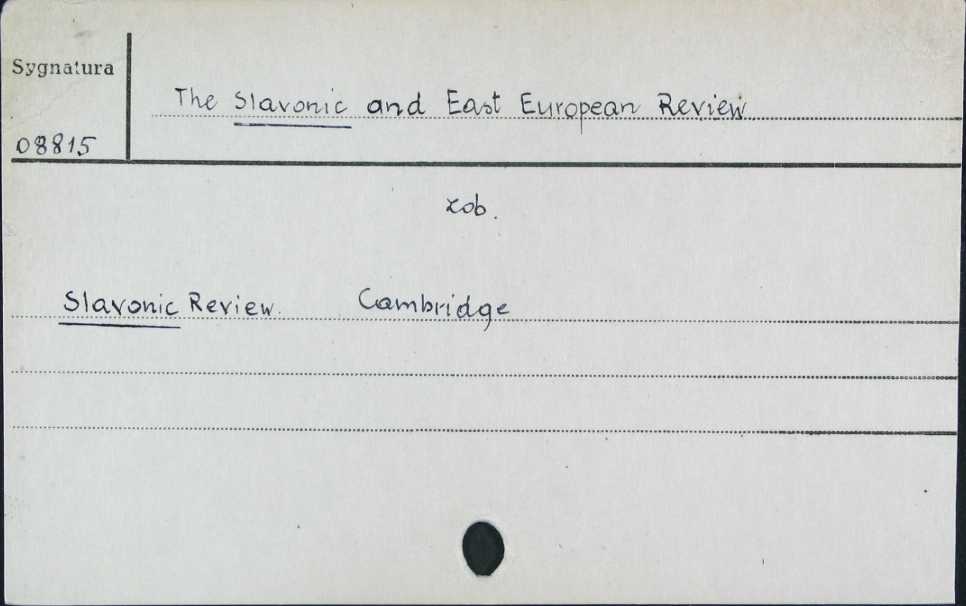 Sygnatura
The Slavonic and East European Review
08815
zob.
Slavonic Review. Cambridge